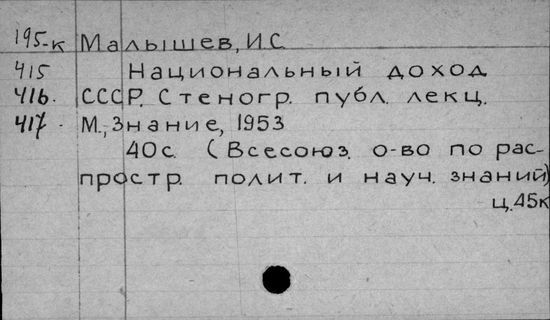 195-к Малышев, И С
415 Национальный доход
416. СССР. Стеногр. публ. лекц.
417. М., Знание, 1953
40с. (Всесоюз. о-во по рас-
простр. полит. и науч. знаний)
ц. 45к